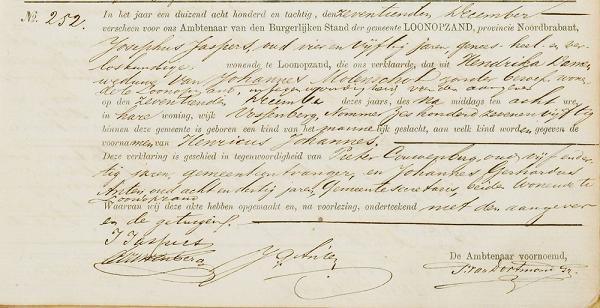 No. 252.
In het jaar een duizend acht honderd en tachtig, den zeventienden December
verscheen voor ons Ambtenaar van den Burgerlijken Stand der gemeente LOONOPZAND, provincie Noordbrabant,
Josephus Jaspers, oud vier en vijftig jaren, genees- heel- en ver-
loskundige wonende te Loonopzand, die ons verklaarde, dat uit Hendrika
weduwe van Johannes Molenschot zonder beroep, wonen-
de te Loonopzand, in tegenwoordigheid van den aangever
op den zeventienden December dezes jaars, des na middags ten acht ure,
in hare woning, wijk Vossenberg, Nommer zes honderd zeven en vijftig
binnen deze gemeente is geboren een kind van het mannelijk geslacht, aan welk kind worden gegeven de
voornamen van Henricus Johannes.
Deze verklaring is geschied in tegenwoordigheid van Pieter Couwenberg, oud vijf en der-
tig jaren, gemeenteontvanger, en Johannes Gerhardus
Anten, oud acht en dertig jaren, Gemeentesecretaris, beiden wonende te
Loonopzand
Waarvan wij deze akte hebben opgemaakt en, na voorlezing, onderteekend met den aangever
en de getuigen.
J Jaspers
De Ambtenaar voornoemd,